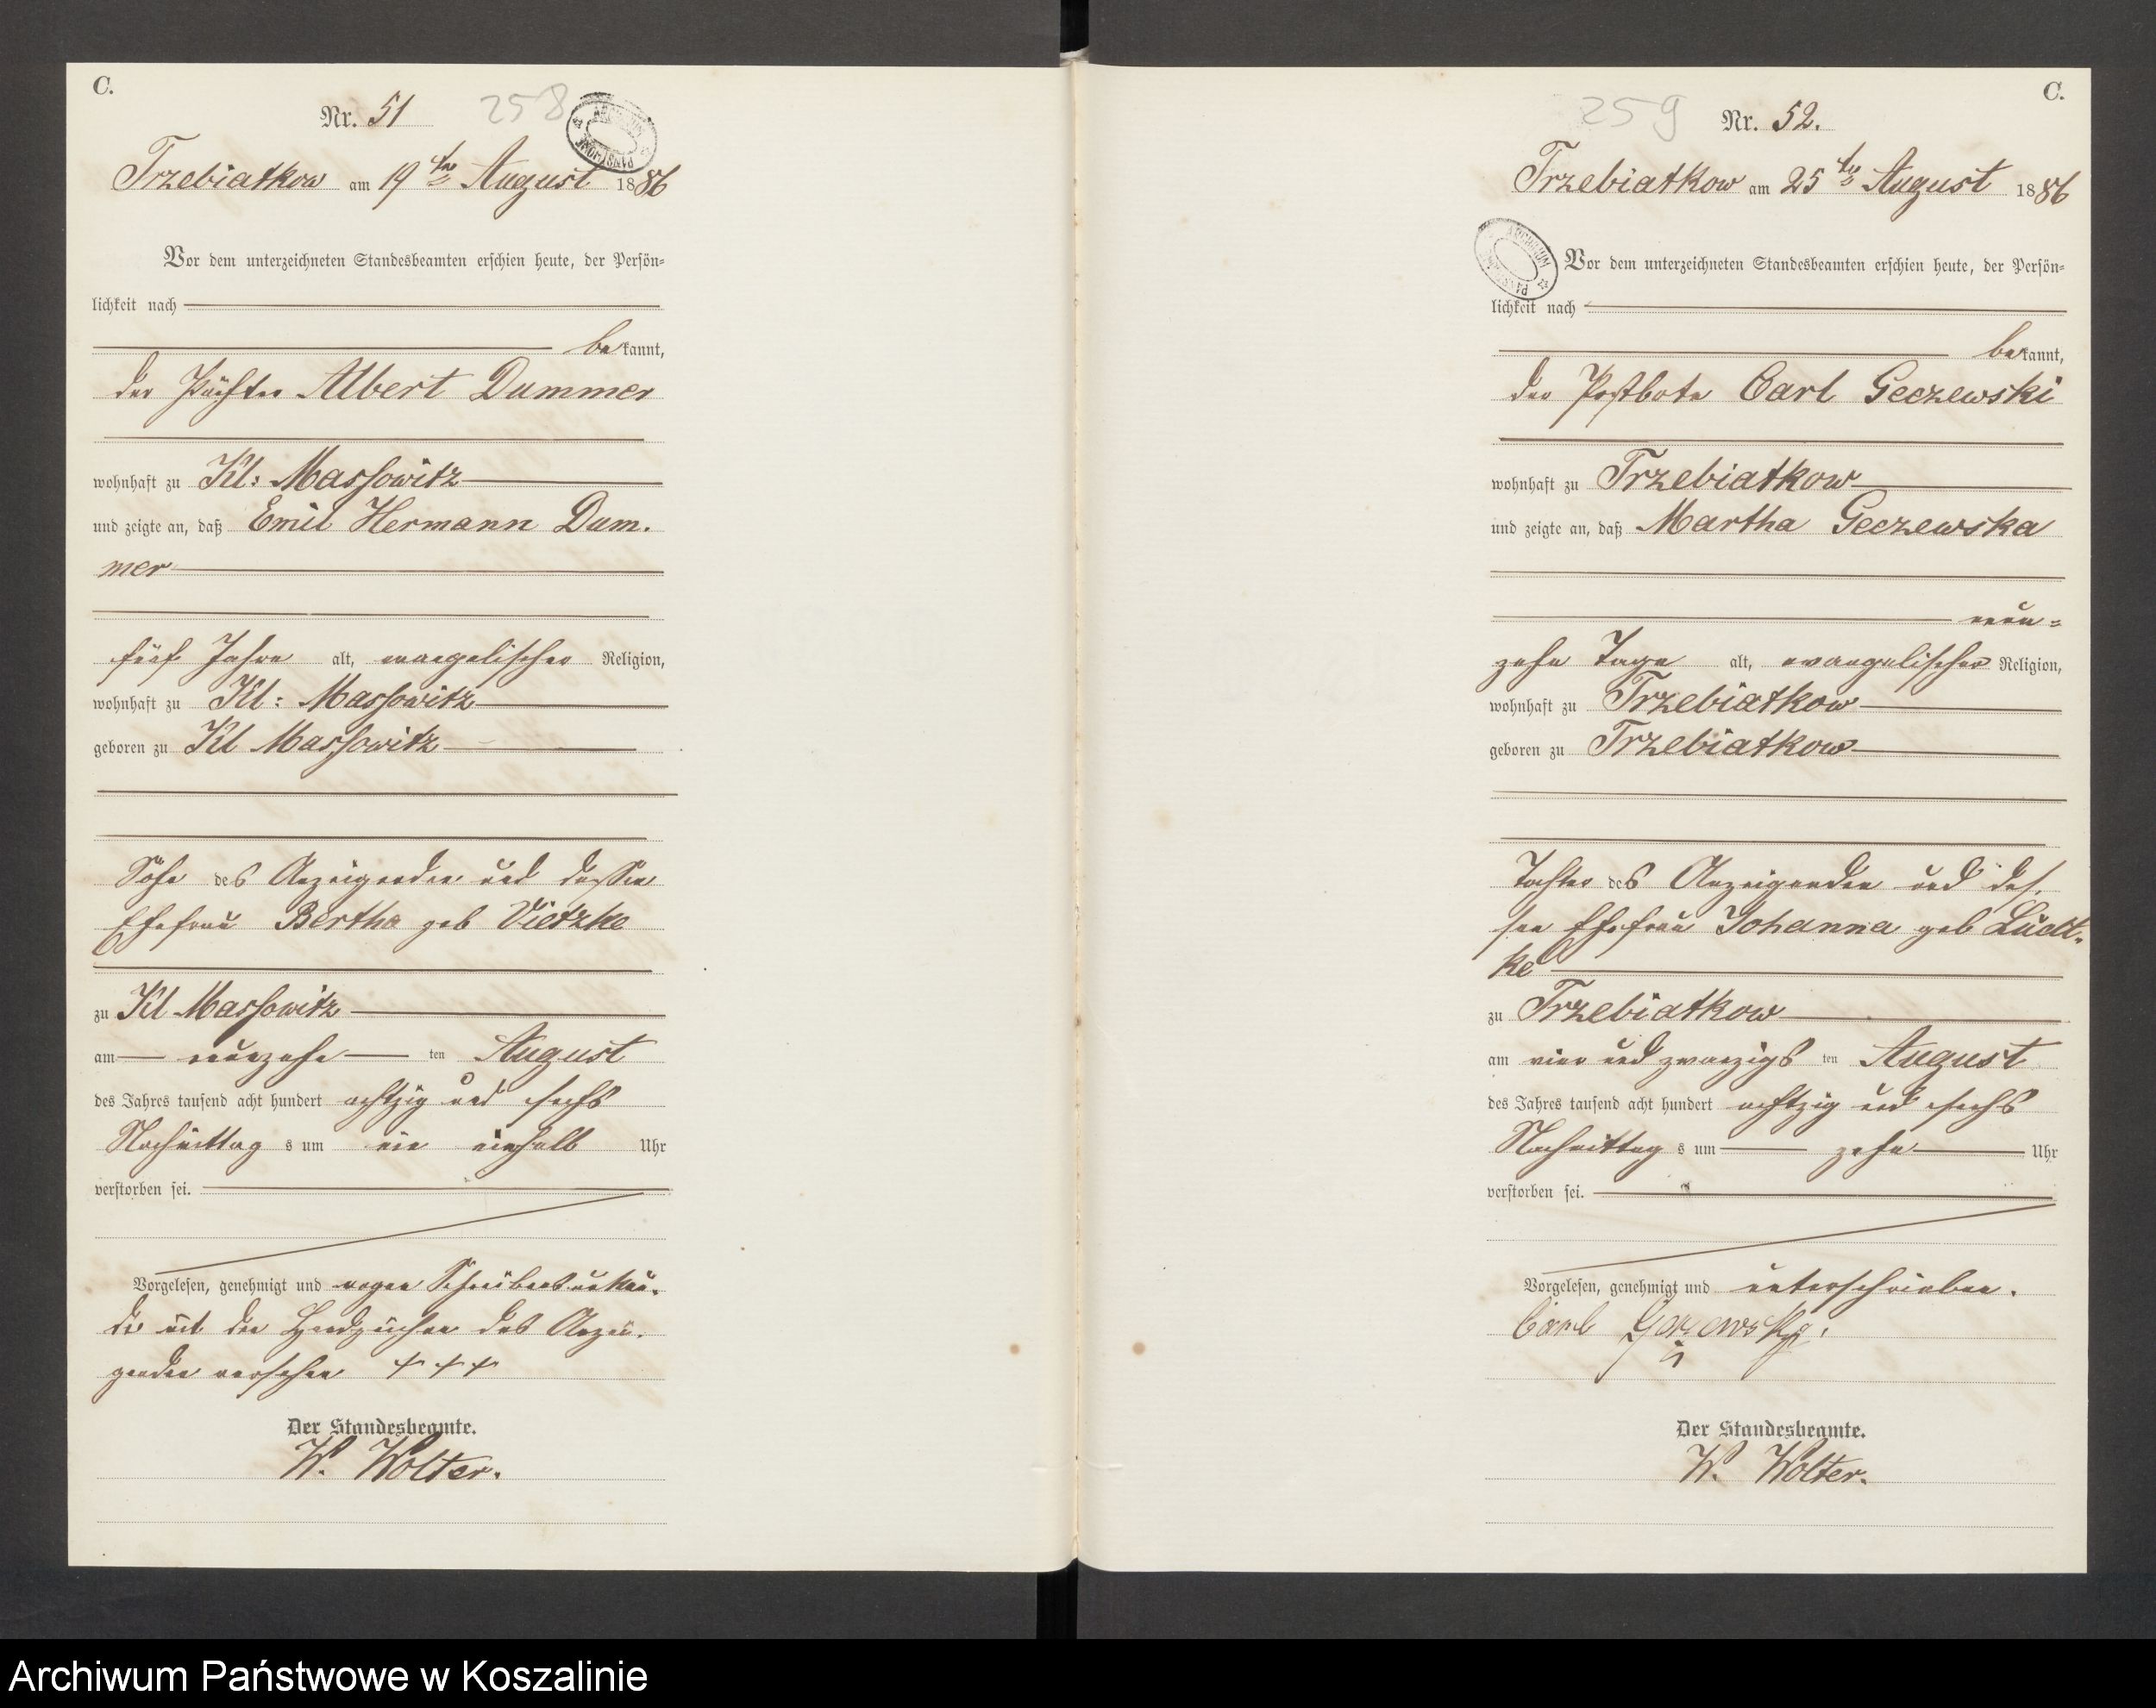 C.
Nr. 51
258
Trzebiatkow am 19ten August 1886
Vor dem unterzeichneten Standesbeamten erschien heute, der Persön-
lichkeit nach
bekannt,
der Pächter Albert Dummer
wohnhaft zu Kl: Massowitz
und zeigte an, daß Emil Hermann Dum-
mer
fünf Jahre alt, evangelischer Religion,
wohnhaft zu Kl: Massowitz
geboren zu Kl Massowitz
Sohn des Anzeigenden und dessen
Ehefrau Bertha geb Vietzke
zu Kl Massowitz
am neunzehn ten August
des Jahres tausend acht hundert achtzig und sechs
Nachmittag s um ein einhalb Uhr
verstorben sei.
Vorgelesen, genehmigt und wegen Schreibensunkun-
de mit den Handzeichen des Anzei-
genden versehen + + +
Der Standesbeamte.
W. Wolter.
C.
259
Nr. 52.
Trzebiatkow am 25ten August 1886
Vor dem unterzeichneten Standesbeamten erschien heute, der Persön-
lichkeit nach
bekannt,
der Postbote Carl Geczewski
wohnhaft zu Trzebiatkow
und zeigte an, daß Martha Geczewska
neun-
zehn Tage alt, evangelischer Religion,
wohnhaft zu Trzebiatkow
geboren zu Trzebiatkow
Tochter des Anzeigenden und des-
sen Ehefrau Johanna geb Luedt-
ke
zu Trzebiatkow
am vier und zwanzigs ten August
des Jahres tausend acht hundert achtzig und sechs
Nachmittag s um zehn Uhr
verstorben sei.
Vorgelesen, genehmigt und unterschrieben.
Carl
Der Standesbeamte.
W. Wolter.
Archiwum Państwowe w Koszalinie